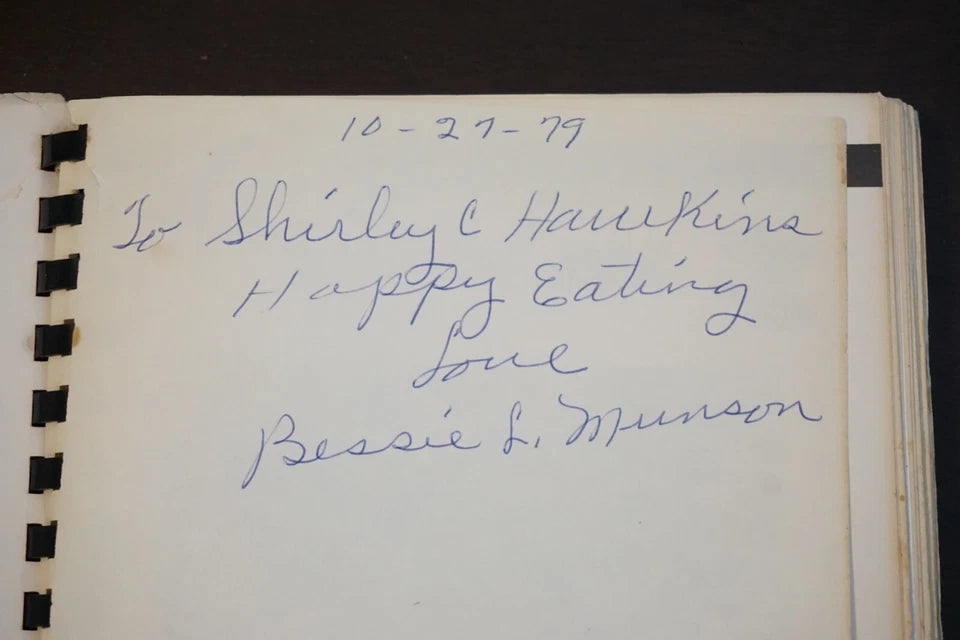 10-27-79
To Shirley C Hawkins
Happy Eating
Love
Bessie L. Munson